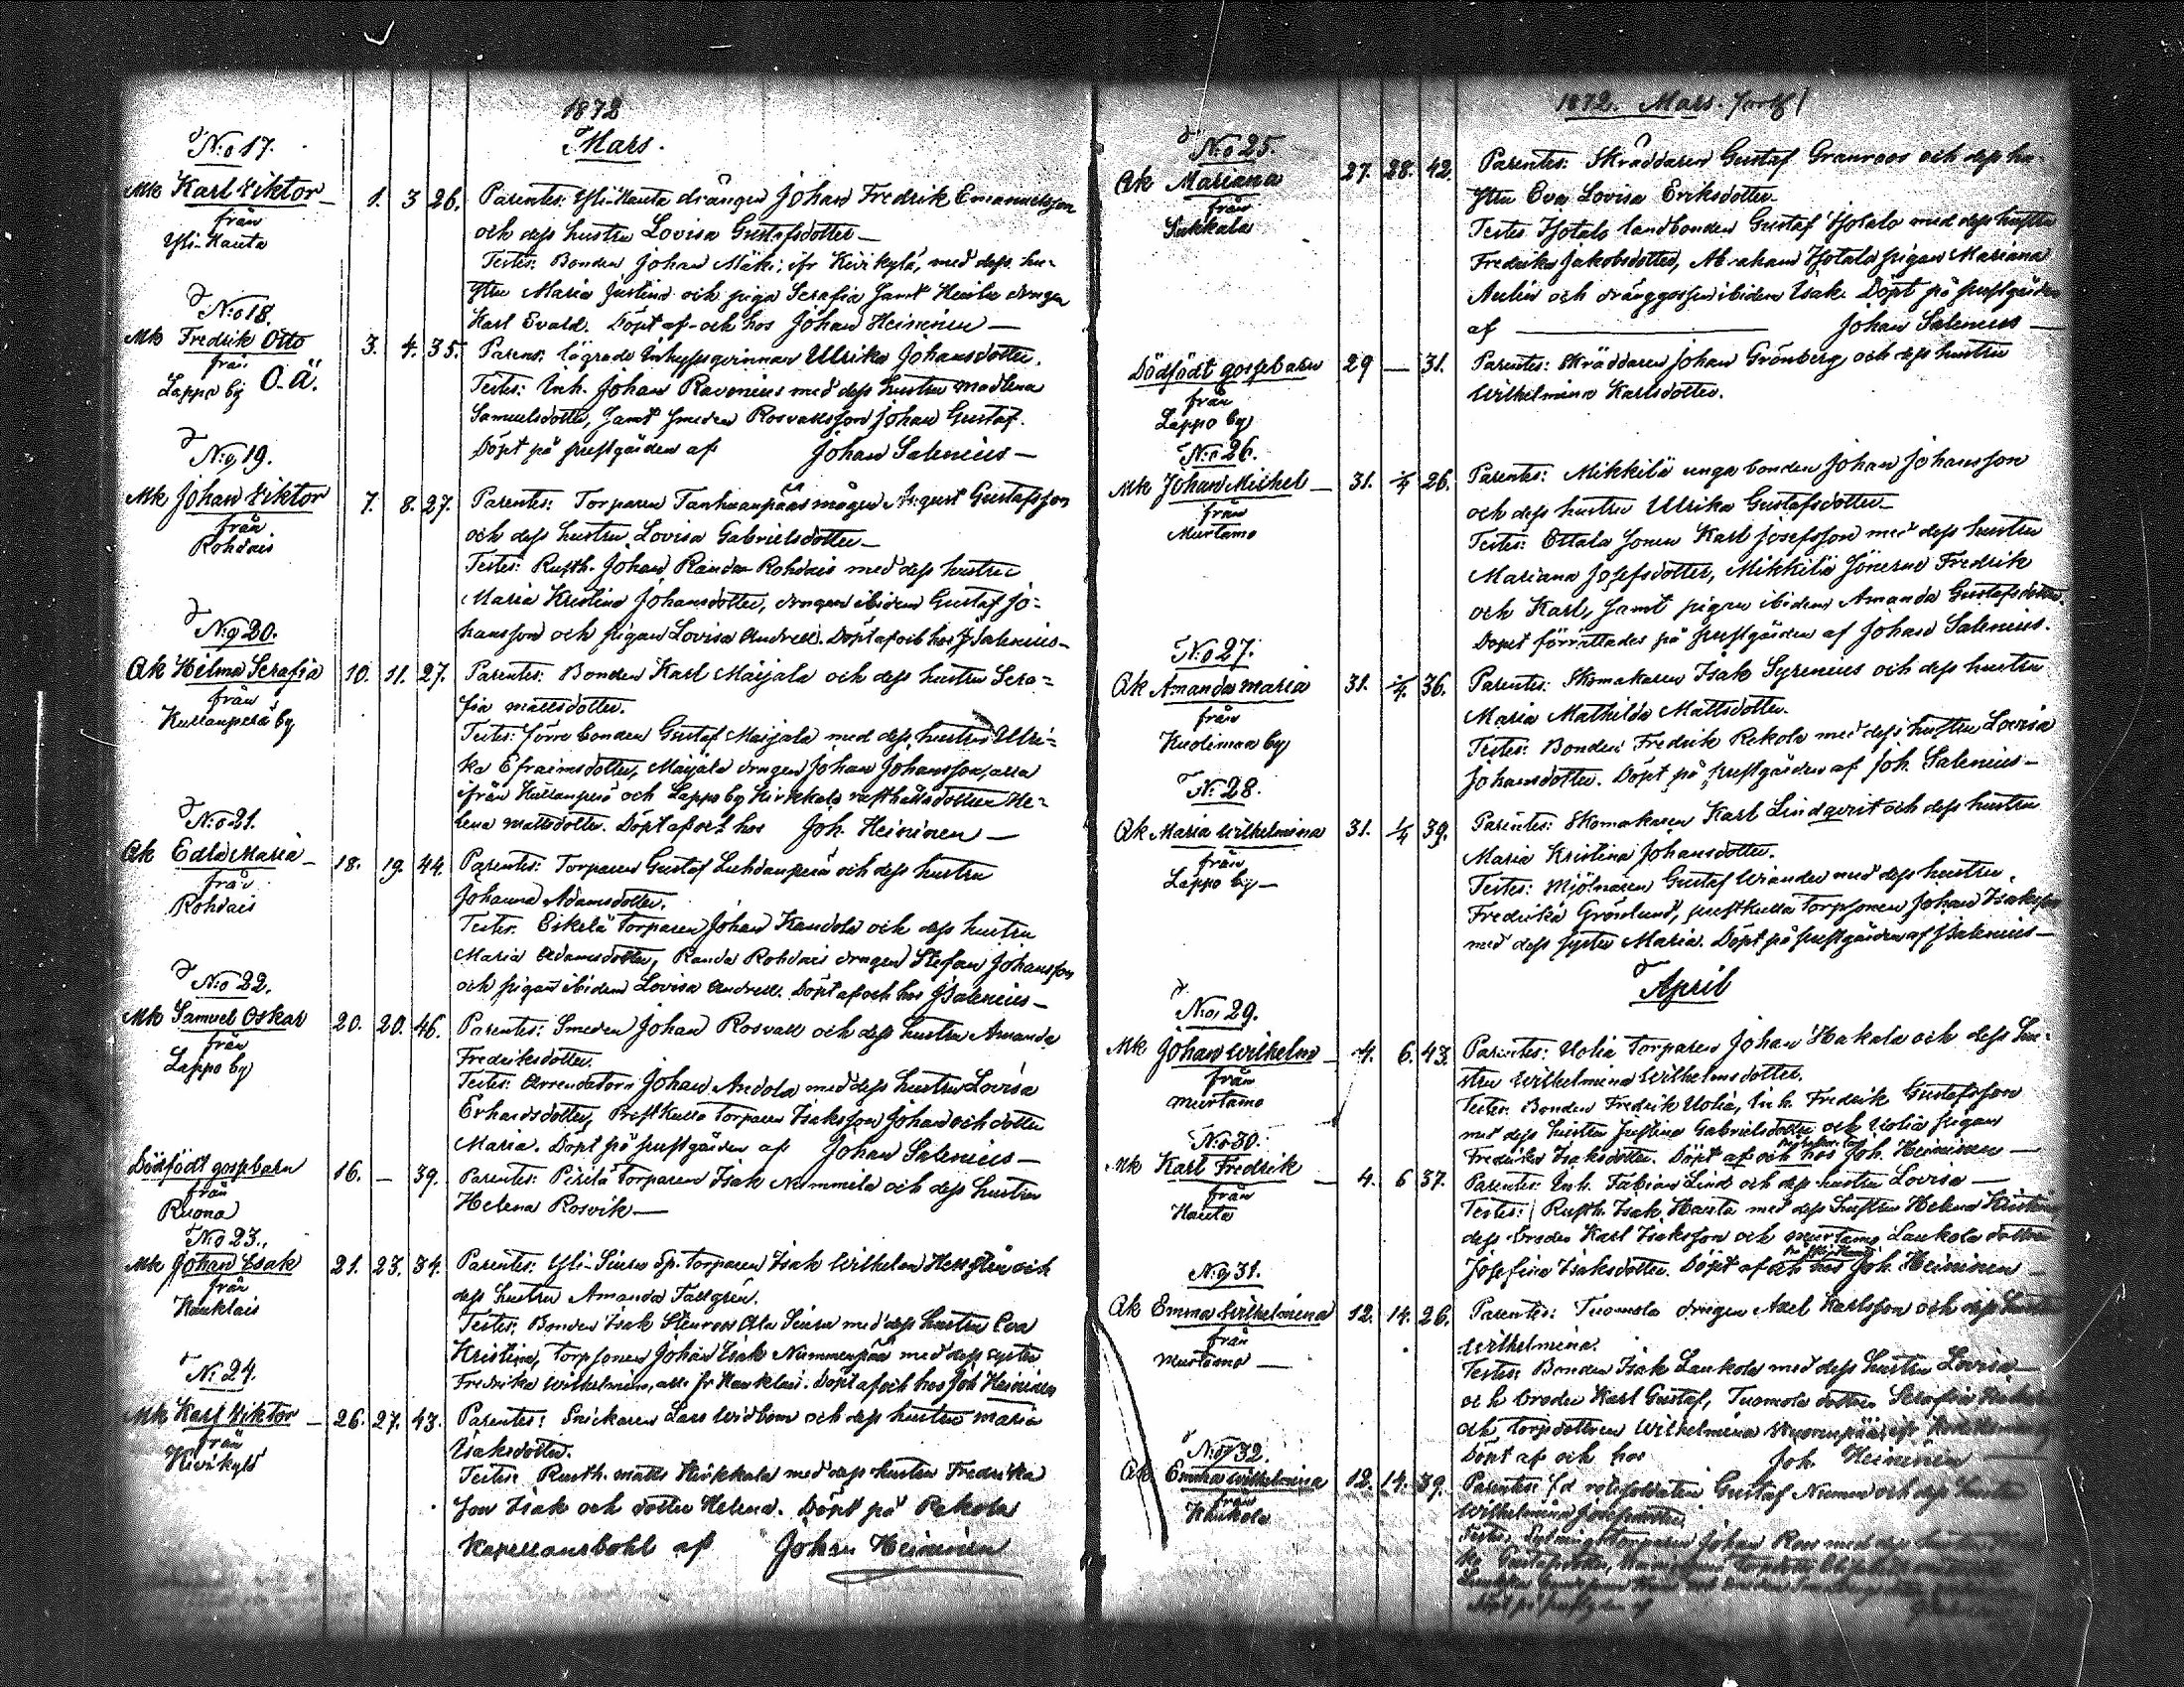 1872
Mars.
N:o 17.
Mk Karl Viktor 1. 3 26. Parentes: Yli-Hauta drängen Johan Fredrik Emanuelsson
från
Yli-Hauta
och dess hustru Lovisa Gustafsdotter
Testes: Bonden Johan Mäki, ifr Kivikylä, med dess hu-
stru Maria Justina och piga Serafia samt Heikola drengen
Karl Evald. Döpt af och hos Johan Heininen
N:o 18.
Mk Fredrik Otto 3. 4. 35. Parens: lägrade Inhysesqvinnan Ulrika Johansdotter.
från
Lappo by O.Ä.
Testes: Inh. Johan Ravenius med dess hustru Madlena
Samuelsdotter, samt smeden Rosvalls son Johan Gustaf.
Döpt på prestgården af Johan Salenius
N:o 19.
Mk Johan Viktor 7. 8. 27. Parentes: Torparen Tanhuanpääs mågen August Gustafsson
från
Rohdais
och dess hustru Lovisa Gabrielsdotter
Testes: Rusth. Johan Randa Rohdais med dess hustru
Maria Kristina Johansdotter, drengen ibidem Gustaf Jo-
hansson och pigan Lovisa Andrell. Döpt af och hos J Salenius
N:o 20.
Ak Hilma Serafia 10. 11. 27. Parentes: Bonden Karl Maijala och dess hustru Sera-
från
Kullanperä by
fia Mattsdotter.
Testes: förre bonden Gustaf Maijala med dess hustru Ulri-
ka Efraimsdotter, Maijala drengen Johan Johansson, alla
ifrån Kullanperä och Lappo by Kirkkala rusthållsdottern He-
lena Mattsdotter. Döpt af och hos Joh. Heininen
N:o 21.
Ak Edla Maria 18. 19. 44. Parentes: Torparen Gustaf Luhdanperä och dess hustru
från
Rohdais
Johanna Adamsdotter.
Testes: Eskelä torparen Johan Kandola och dess hustru
Maria Adamsdotter, Randa Rohdais drengen Stefan Johansson
och pigan ibidem Lovisa Andrell. Döpt af och hos J Salenius
N:o 22.
Mk Samuel Oskar 20. 20. 46. Parentes: Smeden Johan Rosvall och dess hustru Amanda
från
Lappo by
Fredriksdotter.
Testes: Arrendatorn Johan Andola med dess hustru Lovisa
Erhardsdotter, Prestkulla torparen Isaksson Johan och dotter
Maria. Döpt på prestgården af Johan Salenius
Dödfödt gossebarn 16. — 39. Parentes: Pirilä torparen Isak Nummila och dess hustru
från
Ruona
Helena Rosvik
N:o 23.
Mk Johan Isak 21. 23. 34. Parentes: Yli-Siuru Sp. torparen Isak Wilhelm och
från
Hauklais
dess hustru Amanda Tallgrén.
Testes: Bonden Isak Stenroos Ala Siuru med dess hustru Eva
Kristina, torpsonen Johan Isak Nummenpää med dess syster
Fredrika Wilhelmina, alla fr Hauklais. Döpt af och hos Joh Heininen
N: 24.
Mk Karl Viktor 26. 27. 43. Parentes: Snickaren Lars Widbom och dess hustru Maria
från
Kivikylä
Isaksdotter.
Testes: Rusth. Matts Kirkkala med dess hustru Fredrika
son Isak och dotter Helena. Döpt på Pakola
Kapellansbohl af Johan Heininen
1872. Mars. forts/
N:o 25.
Ak Mariana 27. 28. 42. Parentes: Skräddaren Gustaf Granroos och dess hu-
från
Sukkala
stru Eva Lovisa Eriksdotter.
Testes landbonden Gustaf med dess hustru
Fredrika Jakobsdotter, Abraham pigan Mariana
Aulin och dränggossen ibidem Isak. Döpt på prestgården
af Johan Salenius
Dödfödt gossebarn 29 — 31. Parentes: Skräddaren Johan Grönberg och dess hustru
från
Lappo by
Wilhelmina Karlsdotter.
N:o 26.
Mk Johan Michel 31. 1/4 26. Parentes: Mikkilä unga bonden Johan Johansson
från
Murtamo
och dess hustru Ulrika Gustafsdotter
Testes: Ottala sonen Karl Josefsson med dess hustru
Mariana Josefsdotter, Mikkilä sönerne Fredrik
och Karl, samt pigan ibidem Amanda Gustafsdotter.
Dopet förrättades på prestgården af Johan Salenius.
N:o 27.
Ak Amanda Maria 31. 1/4 36. Parentes: Skomakaren Isak Syrenius och dess hustru
från
Kuolimaa by
Maria Mathilda Mattsdotter.
Testes: Bonden Fredrik Rekola med dess hustru Lovisa
Johansdotter. Döpt på prestgården af Joh. Salenius
N: 28.
Ak Maria Wilhelmina 31. 1/4 39. Parentes: Skomakaren Karl Lindqvist och dess hustru
från
Lappo by
Maria Kristina Johansdotter.
Testes: Mjölnaren Gustaf Wiander med dess hustru
Fredrika Grönlund, prestkulla torpsonen Johan Isaksson
med dess syster Maria. Döpt på prestgården af J Salenius
April
N:o 29.
Mk Johan Wilhelm 4. 6. 43. Parentes: Uolia torparen Johan Hakala och dess hu-
från
Murtamo
stru Wilhelmina Wilhelmsdotter.
Testes: Bonden Fredrik Uolia, Inh. Fredrik Gustafsson
med dess hustru Justina Gabrielsdotter och Uolia pigan
Fredrika Isaksdotter. Döpt af och hos Joh. Heininen
N:o 30.
Mk Karl Fredrik 4. 6 37. Parentes: Inh. Fabian Lind och dess hustru Lovisa
från
Hauta
Testes: Rusth. Isak Hauta med dess hustru Helena Kristina
dess broder Karl Isaksson och Murtamo Laukola dottren
Josefina Isaksdotter. Döpt af och hos Joh. Heininen
N:o 31.
Ak Emma Wilhelmina 12. 14. 26. Parentes: Tuomola drengen Axel Karlsson och dess hustru
från
Murtamo
Wilhelmina.
Testes: Bonden Isak Laukola med dess hustru Lovisa
och broder Karl Gustaf, Tuomola dottren Serafia
och torpdottren Wilhelmina
Döpt af och hos Joh. Heininen
N:o 32.
Ak Emma Wilhelmina 12. 14. 39. Parentes: f.d. rotesoldaten Gustaf Numen och dess hustru
från
Haukola
Wilhelmina Josefsdotter.
Testes: torparen Johan Roos med dess hustru
Gustafsdotter,
Döpt på prestgården af